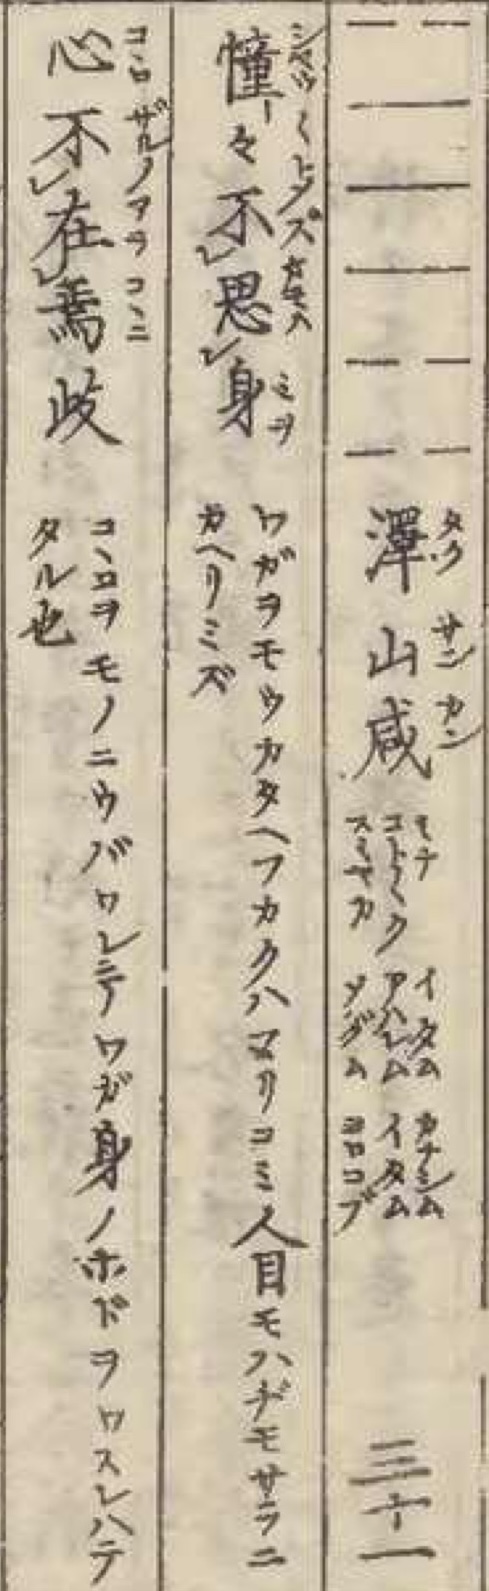 澤山咸 三十一
タク サン カン
ミナ コトゴトク スミヤカ
イタム アハレム
カナシム イタム ヨロコブ
憧々不思身
カヘリミズ
ワガヲモウカタヘフカクハマリコミ人目モハヂモサラニ
ミヲ
心不在焉歧
コヽロ ザルノアラ コヽニ
コヽロヲモノニウバワレテワガ身ノホドヲワスレハテ
タル也